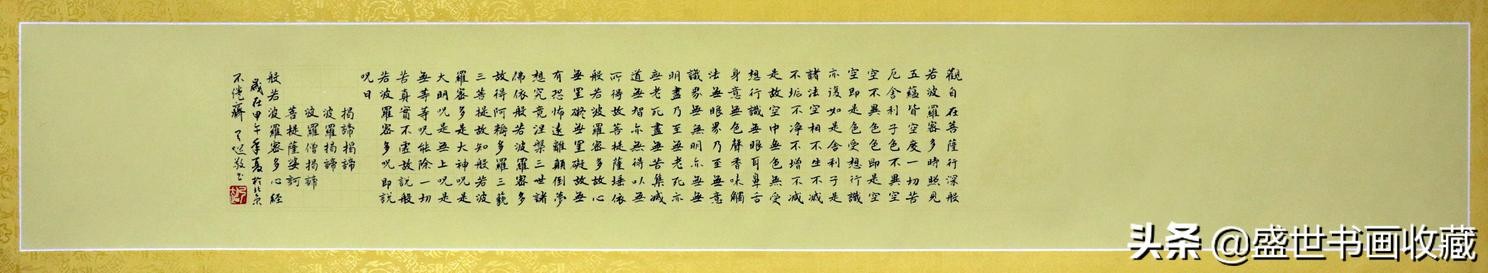 觀自在菩薩行深般
若波羅蜜多時照見
五蘊皆空度一切苦
厄舍利子色不異空
空不異色色即是空
空即是色受想行識
亦復如是舍利子是
諸法空相不生不滅
不垢不淨不增不減
是故空中無色無受
想行識無眼耳鼻舌
身意無色聲香味觸
法無眼界乃至無意
識界無無明亦無無
明盡乃至無老死亦
無老死盡無苦集滅
道無智亦無得以無
所得故菩提薩埵依
般若波羅蜜多故心
無罣礙無罣礙故無
有恐怖遠離顛倒夢
想究竟涅槃三世諸
佛依般若波羅蜜多
故得阿耨多羅三藐
三菩提故知般若波
羅蜜多是大神呪是
大明呪是無上呪是
無等等呪能除一切
苦真實不虛故說般
若波羅蜜多呪即說
呪曰
揭諦揭諦
波羅揭諦
波羅僧揭諦
菩提薩婆訶
般若波羅蜜多心經
歲在甲午年夏於北京
不倦齋
头条 @盛世书画收藏